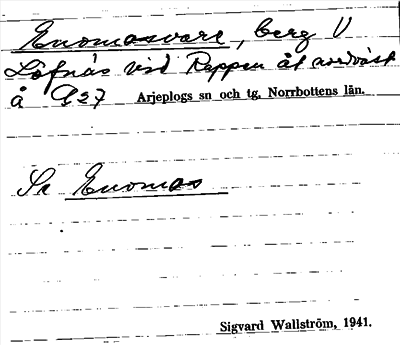 Enomasvare, berg V
Löfnäs vid Rappen åt nordväst
å 927 Arjeplogs sn och tg, Norrbottens län.
Se Enomas
Sigvard Wallström, 1941.